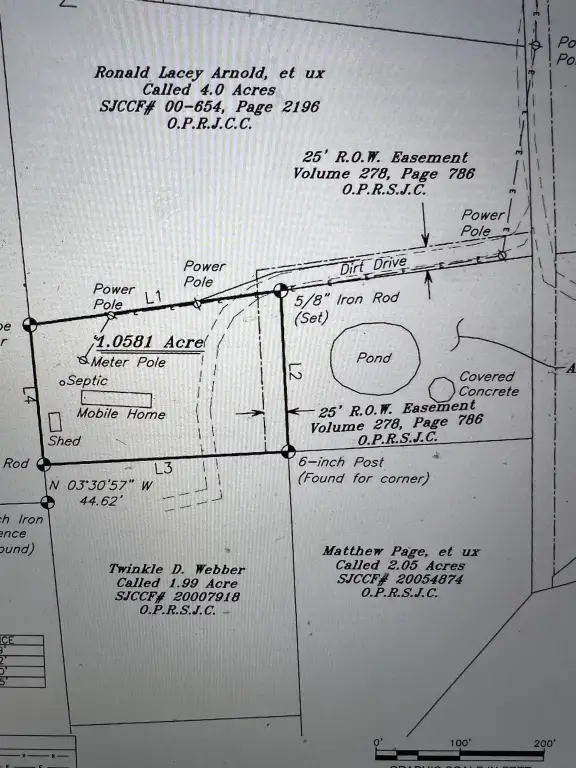 Ronald Lacey Arnold, et ux
Called 4.0 Acres
SJCCF# 00-654, Page 2196
O.P.R.J.C.C.
25' R.O.W. Easement
Volume 278, Page 786
O.P.R.S.J.C.
Power
Pole
Dirt Drive
Power
Pole
Power
Pole
L1
5/8" Iron Rod
(Set)
1.0581 Acre
Meter Pole
Septic
Mobile Home
Shed
L4
L2
Pond
Covered
Concrete
25' R.O.W. Easement
Volume 278, Page 786
O.P.R.S.J.C.
L3
Rod
6-inch Post
(Found for corner)
N 03°30'57" W
44.62'
Iron
Twinkle D. Webber
Called 1.99 Acre
SJCCF# 20007918
O.P.R.S.J.C.
Matthew Page, et ux
Called 2.05 Acres
SJCCF# 20054874
O.P.R.S.J.C.
0' 100' 200'
GRAPHIC SCALE IN FEET